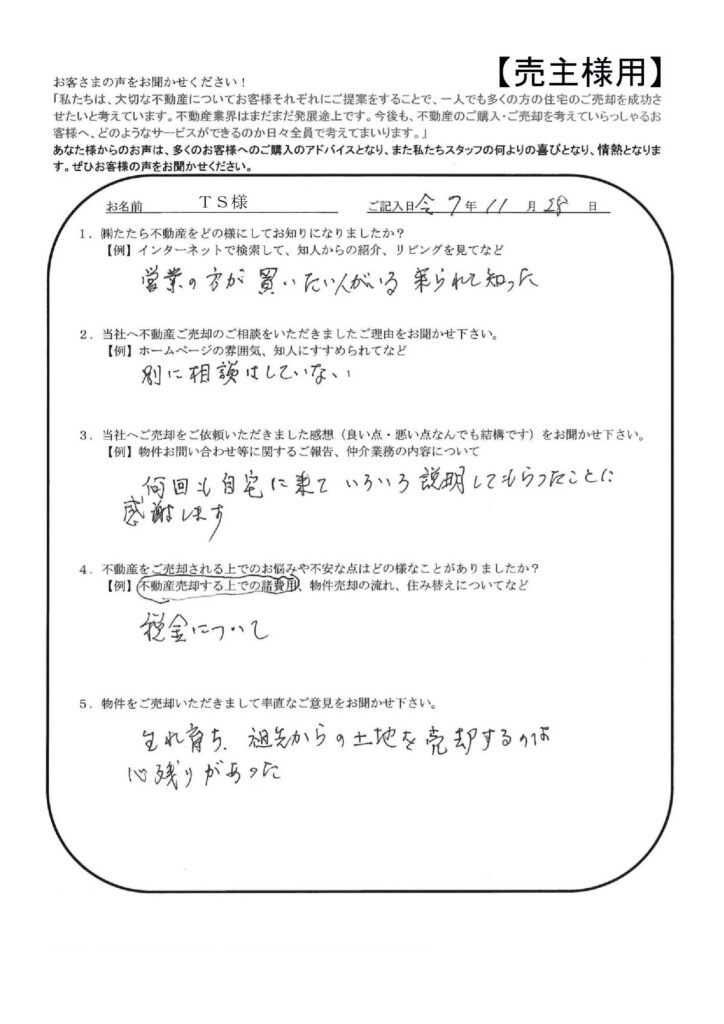 【売主様用】
お客さまの声をお聞かせください！
「私たちは、大切な不動産についてお客様それぞれにご提案をすることで、一人でも多くの方の住宅のご売却を成功さ
せたいと考えています。不動産業界はまだまだ発展途上です。今後も、不動産のご購入・ご売却を考えていらっしゃるお
客様へ、どのようなサービスができるのか日々全員で考えてまいります。」
あなた様からのお声は、多くのお客様へのご購入のアドバイスとなり、また私たちスタッフの何よりの喜びとなり、情熱となりま
す。ぜひお客様の声をお聞かせください。
お名前 ＴＳ様 ご記入日 令7年11月28日
１．㈱たたら不動産をどの様にしてお知りになりましたか？
【例】インターネットで検索して、知人からの紹介、リビングを見てなど
営業の方が 買いたい人がいる 来られて知った
２．当社へ不動産ご売却のご相談をいただきましたご理由をお聞かせ下さい。
【例】ホームページの雰囲気、知人にすすめられてなど
別に相談はしていない
３．当社へご売却をご依頼いただきました感想（良い点・悪い点なんでも結構です）をお聞かせ下さい。
【例】物件お問い合わせ等に関するご報告、仲介業務の内容について
何回も自宅に来て いろいろ説明してもらったことに
感謝します
４．不動産をご売却される上でのお悩みや不安な点はどの様なことがありましたか？
【例】不動産売却する上での諸費用、物件売却の流れ、住み替えについてなど
税金について
５．物件をご売却いただきまして率直なご意見をお聞かせ下さい。
生れ育ち、祖先からの土地を売却するのは
心残りがあった